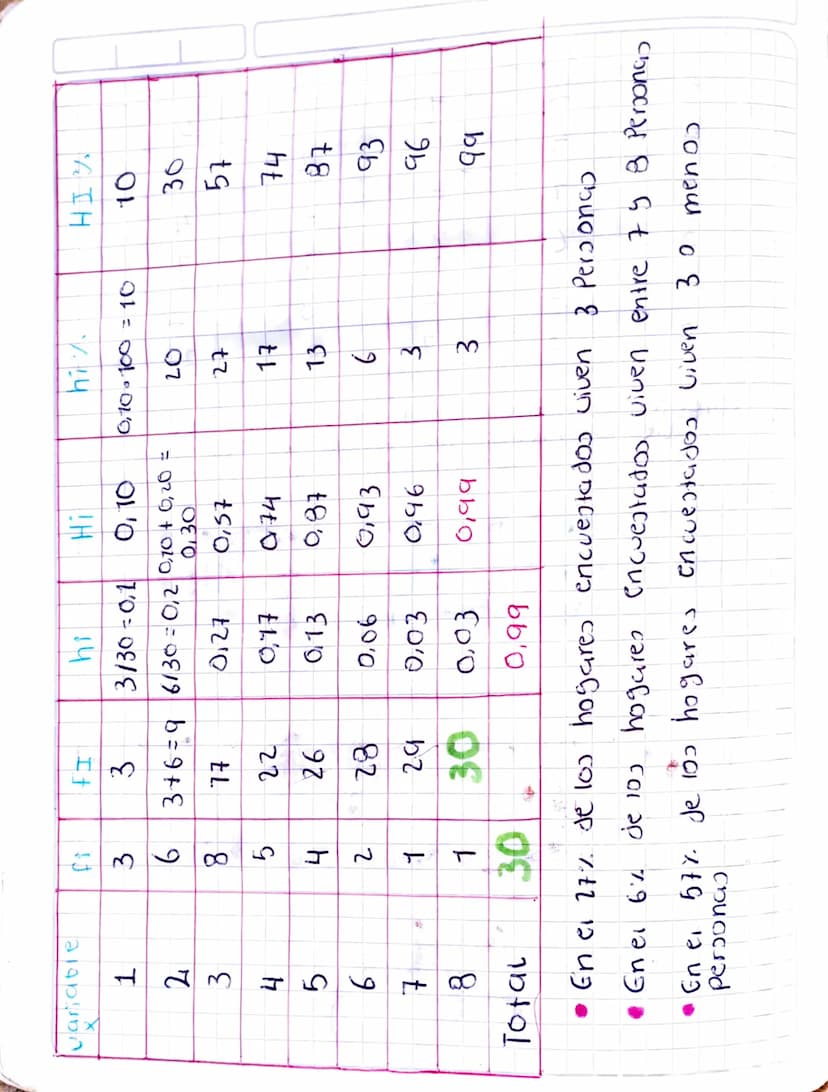 variable x fi fI hi Hi hi% HI%
1 3 3 3/30=0,1 0,10 0,10•100=10 10
2 6 3+6=9 6/30=0,2 0,10+0,20= 20 30
0,30
3 8 17 0,27 0,57 27 57
4 5 22 0,17 0,74 17 74
5 4 26 0,13 0,87 13 87
6 2 28 0,06 0,93 6 93
7 1 29 0,03 0,96 3 96
8 1 30 0,03 0,99 3 99
Total 30 0,99
• En el 27% de los hogares encuestados viven 3 Personas
• En el 6% de los hogares encuestados viven entre 7 y 8 Personas
• En el 57% de los hogares encuestados viven 3 o menos
personas